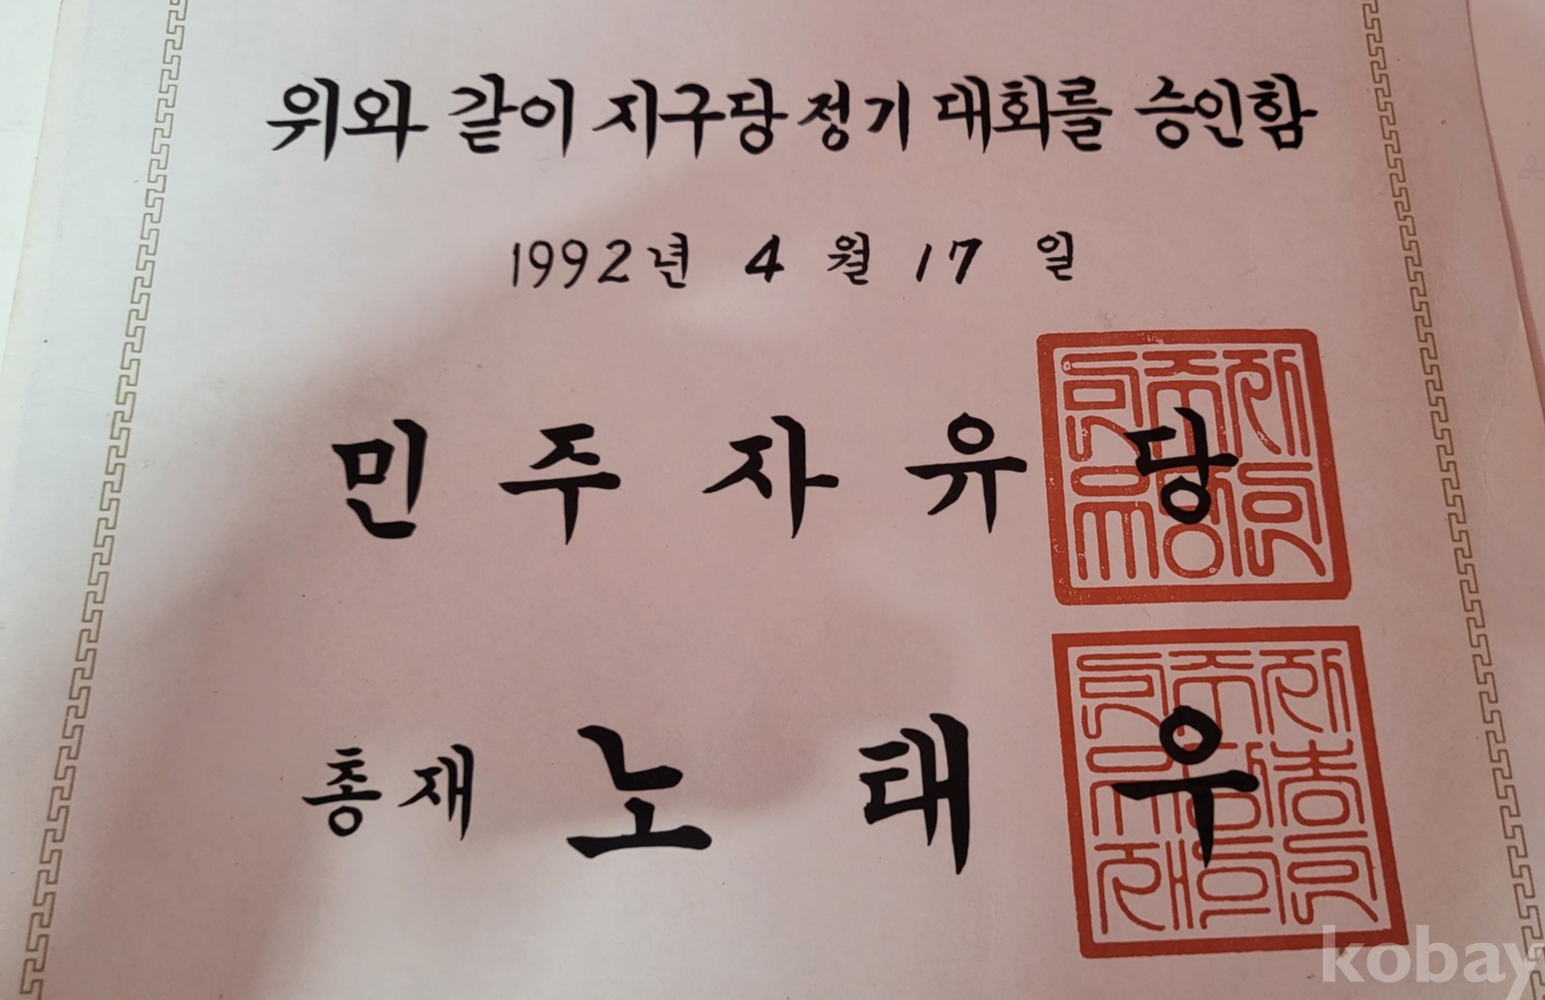 위와 같이 지구당 정기 대회를 승인함
1992년 4 월 17 일
민 주 자 유 당
총재 노 태 우
kobay